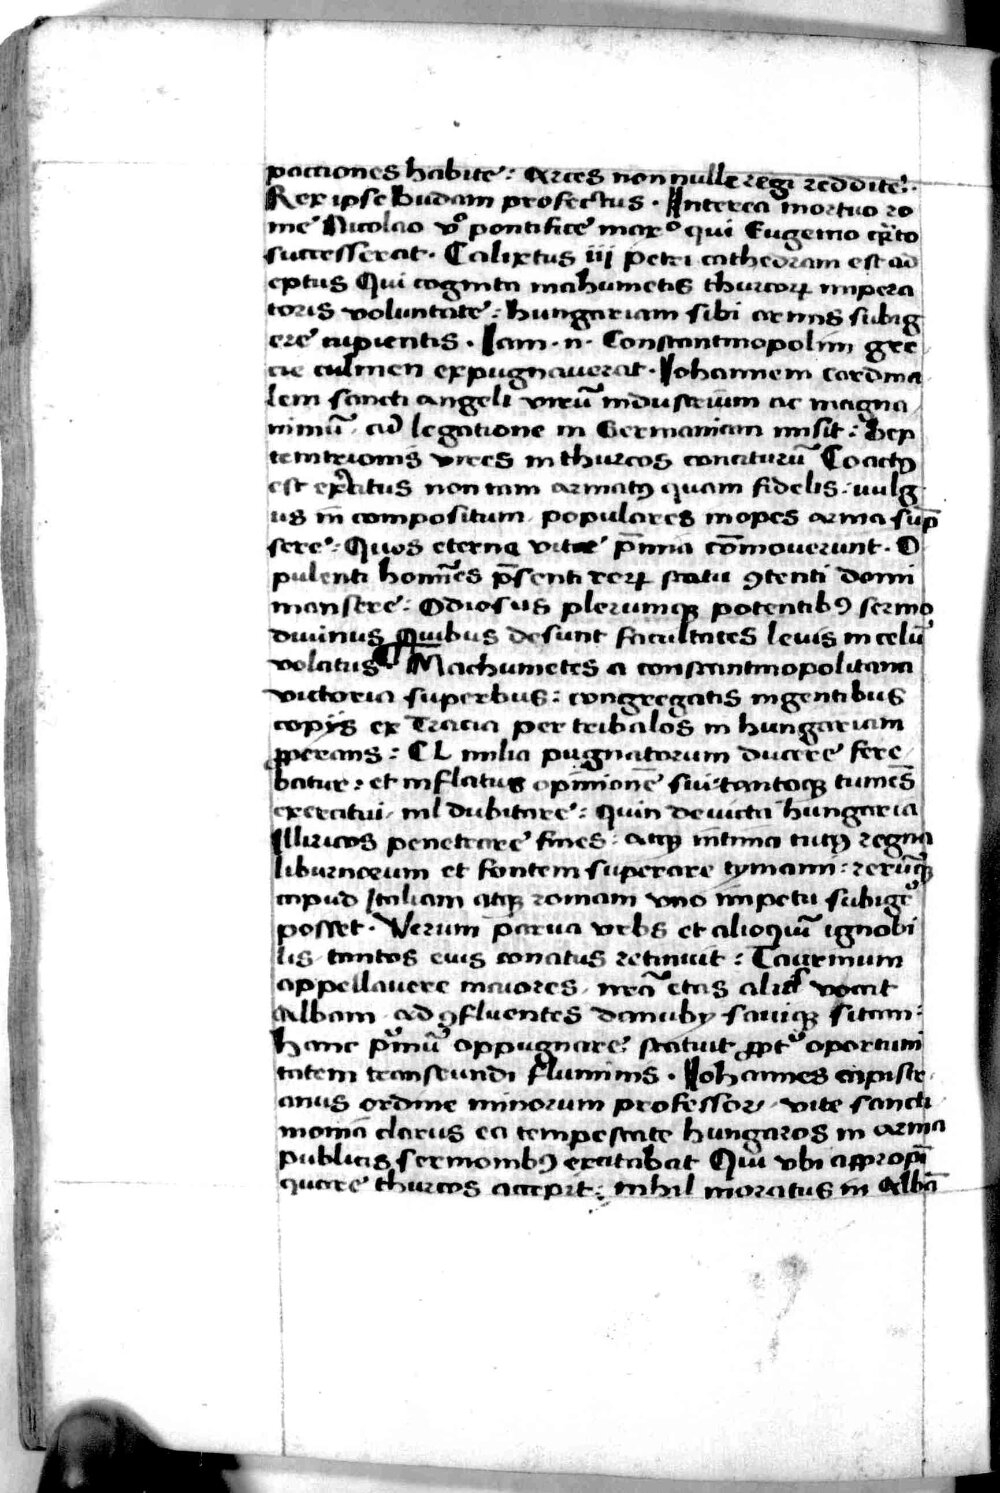 pacciones habite: Arces non nulle regi reddite.
Rex ipse Budam profectus. Interea mortuo ro
me Nicolao vͦ pontifice maxͦ qui Eugenio qrto
successerat. Calixtus iii petri cathedram est ad
eptus Qui cognita mahumetis thurcoꝝ impera
toris voluntate: hungariam sibi armis subig
ere cupientis. Iam. n. Constantinopolim gre
cie culmen expugnauerat. Iohannem cardina
lem sancti angeli virū industrium ac magna
nimū, cū legatione in Germaniam misit: Sep
temtrionis vires in thurcos conciturū Coactꝰ
est exercitus non tam armatꝰ quam fidelis. uulg
us in compositum, populares inopes arma sūp
sere: Quos eterne vite p̄mia cōmouerunt. O
pulenti homīes p̄senti rerꝝ statu ꝯtenti domi
mansere: Odiosus plerumqꝫ potentibꝰ sermo
diuinus Quibus desunt facultates leuis in celū
volatus ¶ Machumetes a constantinopolitana
victoria superbus: congregatis ingentibus
copijs ex Tracia per tribalos in hungariam
ꝓperans: CL milia pugnatorum ducere fere
batur: et inflatus opinione sui tantoqꝫ tumēs
exercitui, nil dubitare: quin deuicta hungaria
Illiricos penetrare fines: atqꝫ intima tutꝰ regna
liburnorum et fontem superare tymaui: rerūqꝫ
caput Italiam atqꝫ romam vno impetu subigere
posset. Verum parua vrbs et alioquī ignobi
lis tantos eius conatus retinuit: Taurinum
appellauere maiores, nrā etas alias vocat
Albam, ad ꝯfluentes danuby sauiqꝫ sitam:
hanc prīmū oppugnare statuit ꝓpter oportuni
tatem transeundi fluminis. Iohannes capistr
anus ordine minorum professor, vite sancti
monia clarus ea tempestate hungaros in arma
publicis sermonibꝰ excitabat Qui vbi appropī
quare thurcos accepit: nihil moratus in Albā